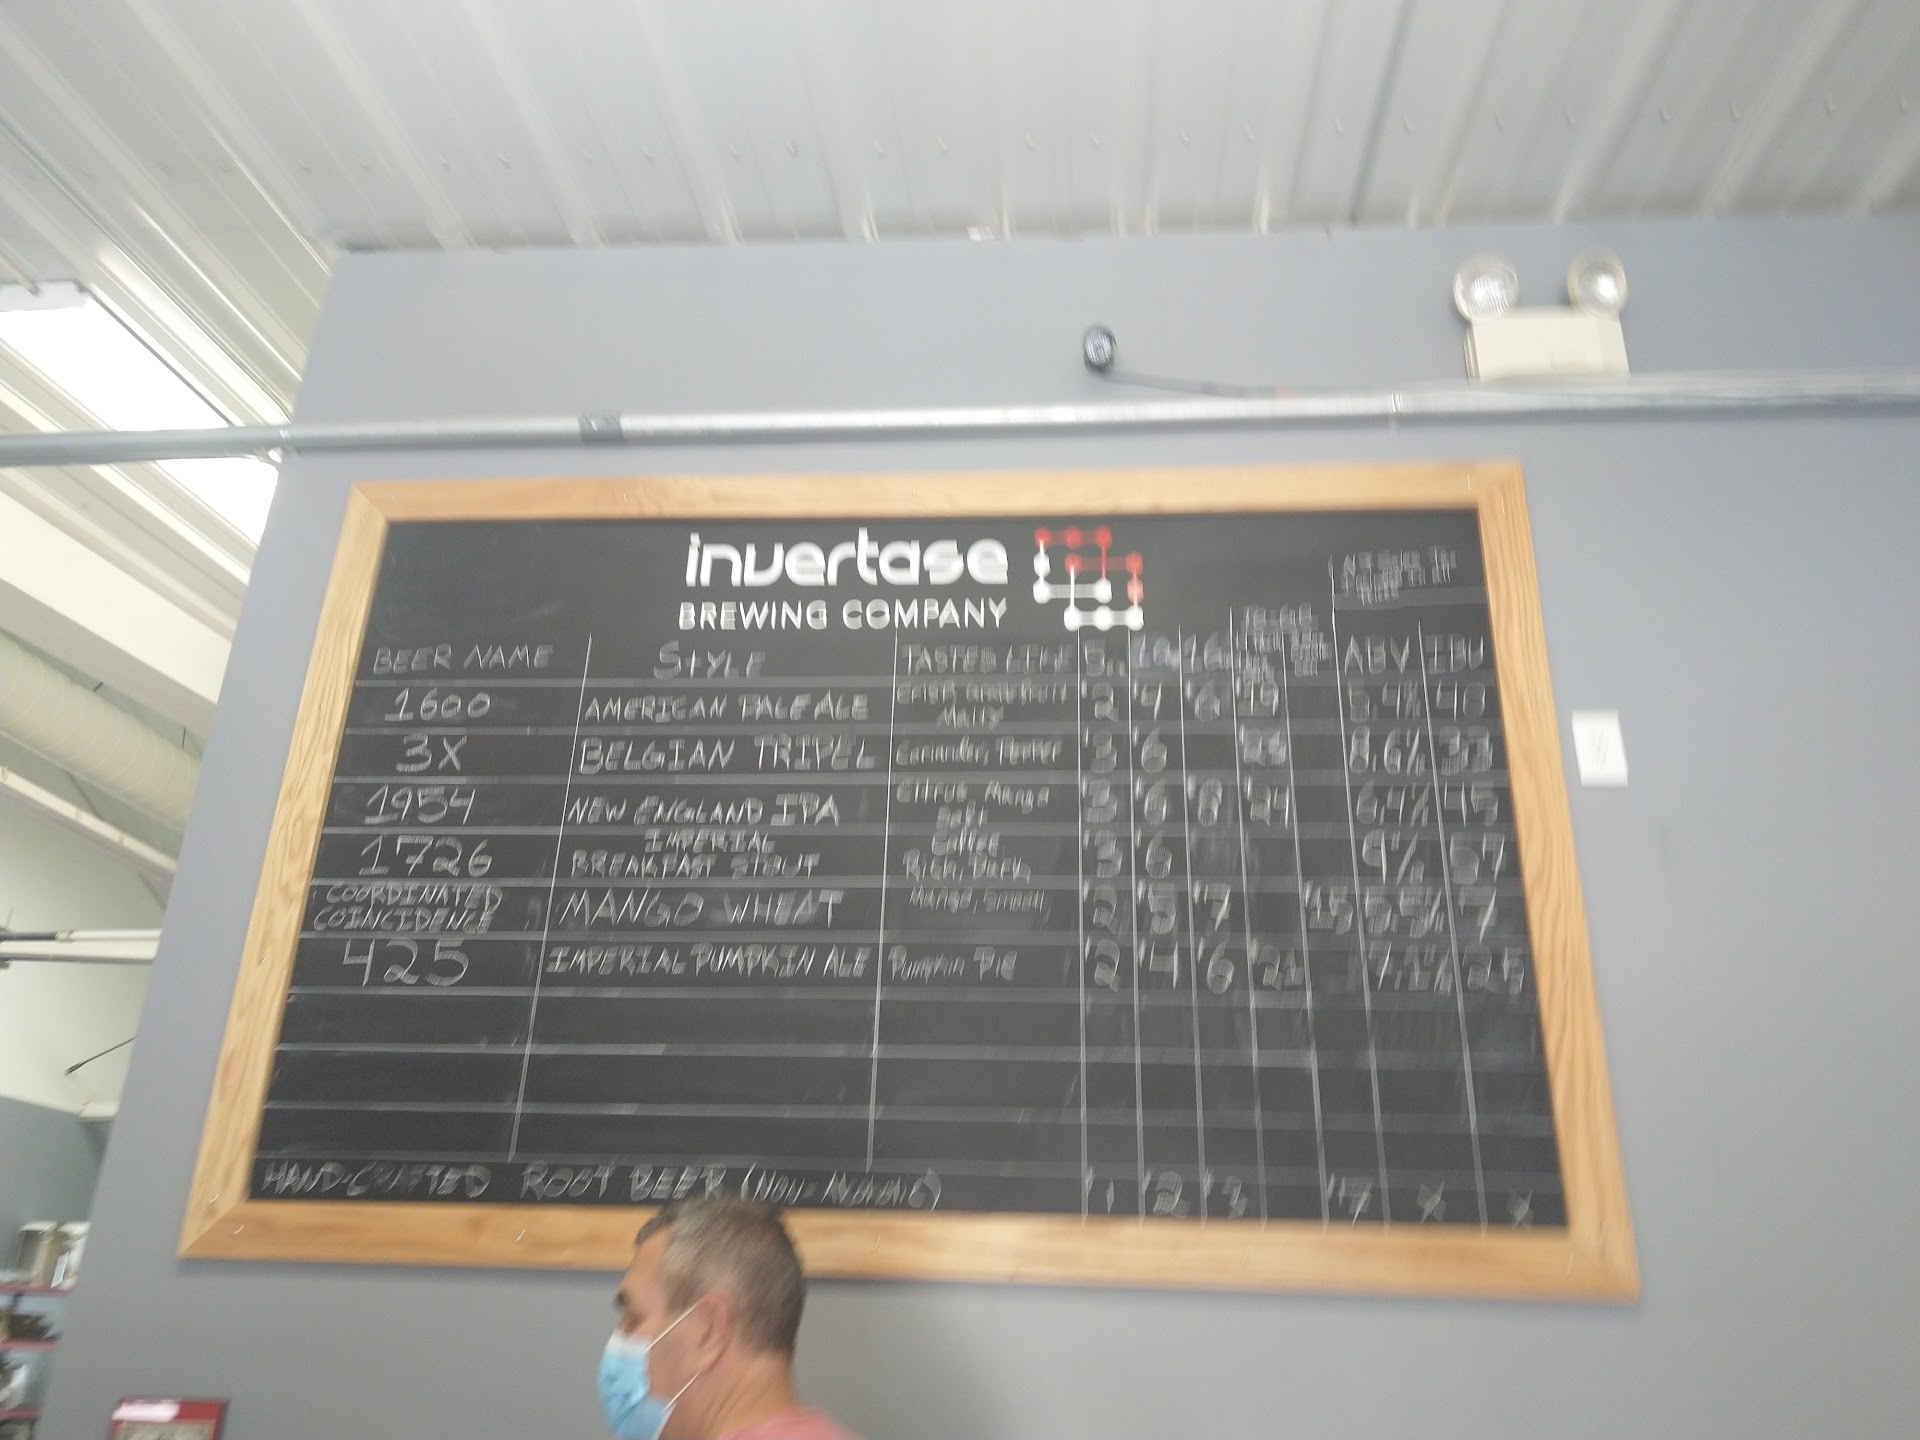 invertase
BREWING COMPANY
BEER NAME STYLE TASTES LIKE ABV IBU
1600 AMERICAN PALE ALE Malty $2 $4 $6 5.4% 40
3X BELGIAN TRIPEL Coriander, Pepper $3 $6 8.6% 33
1954 NEW ENGLAND IPA Citrus, Mango $3 $6 $8 $24 6.4% 45
1726 IMPERIAL BREAKFAST STOUT Coffee Rich, Dark $3 $6 9% 57
COORDINATED COINCIDENCE MANGO WHEAT Mango, smooth $2 $5 $7 $15 5.5% 7
425 IMPERIAL PUMPKIN ALE Pumpkin Pie $2 $4 $6 $21 7.1%
HAND-CRAFTED ROOT BEER (NON-Alcoholic) $1 $2 $3 $7 X X